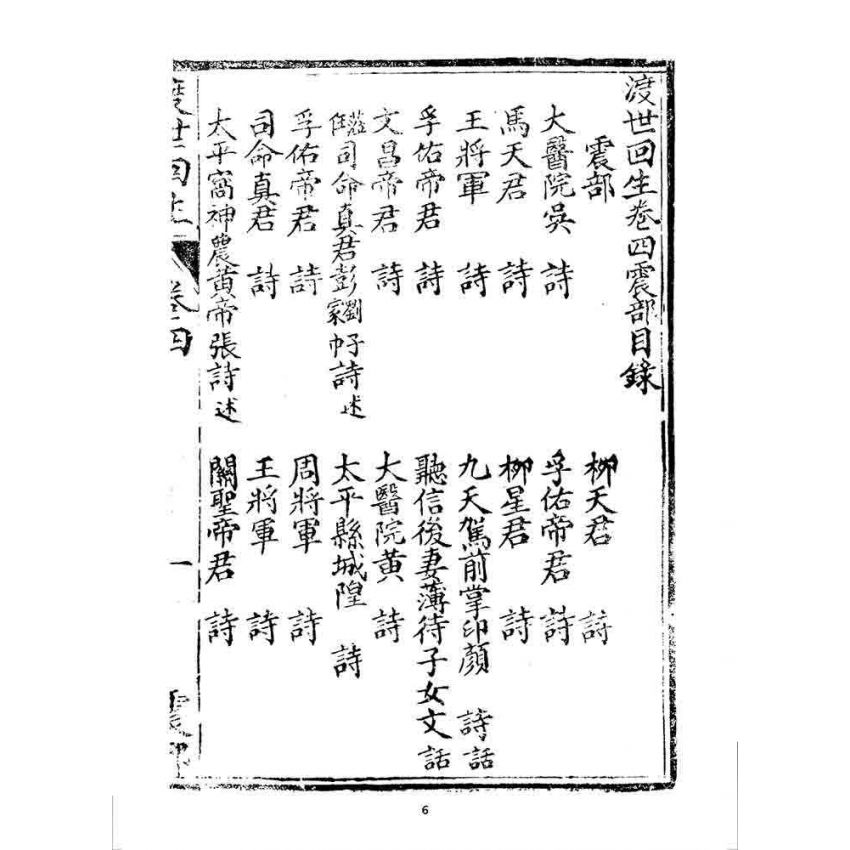 渡世回生卷四震部目錄
震部 柳天君 詩
大醫院吳 詩 孚佑帝君 詩
馬天君 詩 柳星君 詩
王將軍 詩 九天駕前掌印顏 詩話
孚佑帝君 詩 聽信後妻薄待子女文 話
文昌帝君 詩 大醫院黃 詩
司命真君彭 詩述 太平縣城隍 詩
孚佑帝君 詩 周將軍 詩
司命真君 詩 王將軍 詩
太平窩神農黃帝張詩述 關聖帝君 詩
渡世回生 卷四 一 震部
6